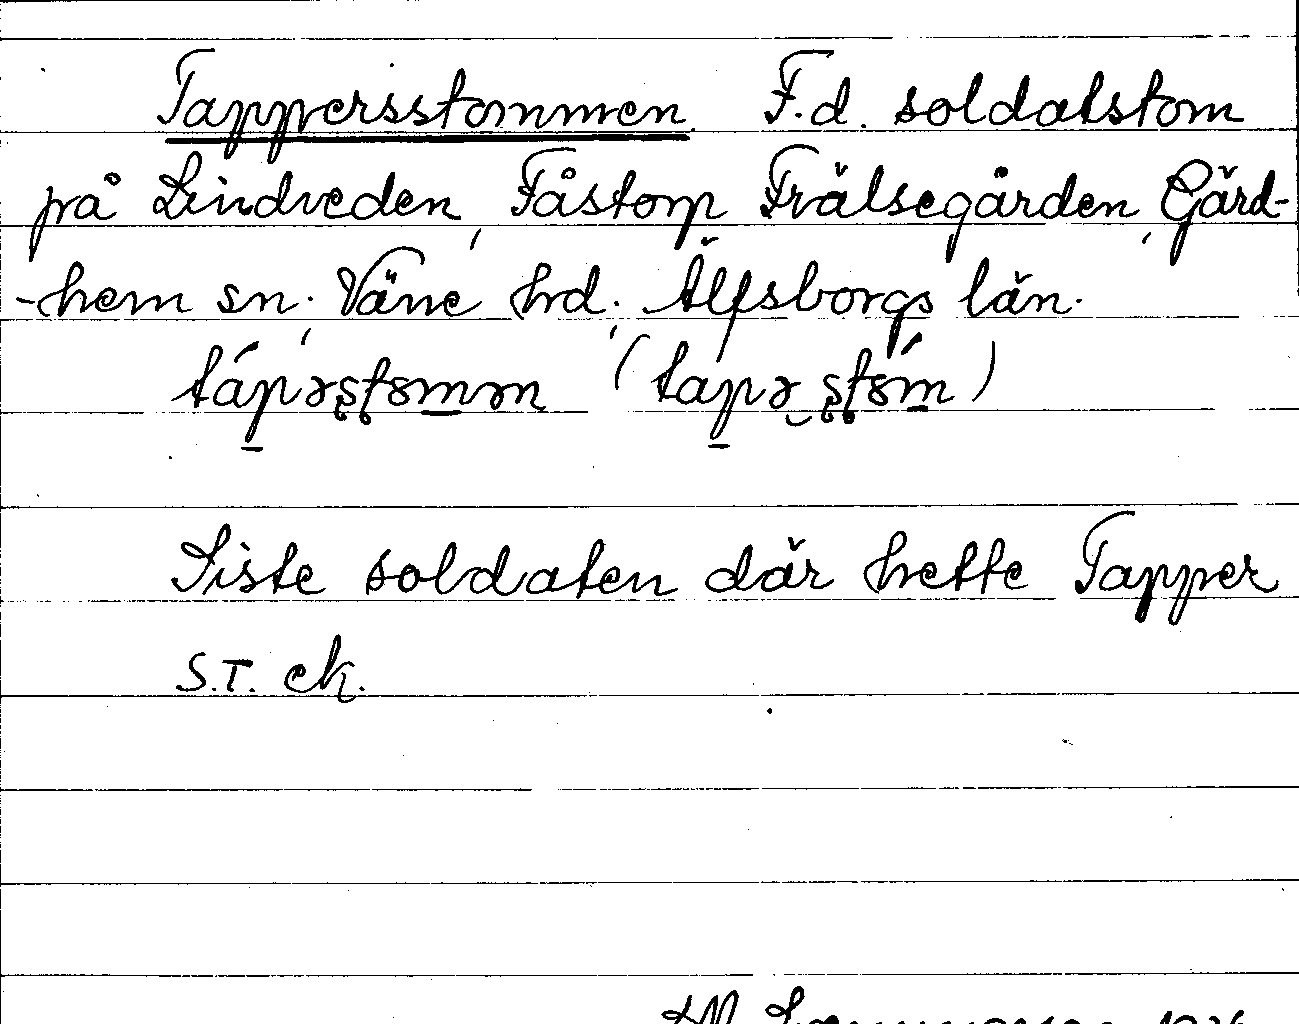 Tappersstommen F.d. soldatstom
på Lindveden, Fåstorp Frälsegården, Gärd-
-hem sn. Väne hrd. Älfsborgs län.
tápəʂʈɷmən (tapə ʂʈɷ́m)
Siste soldaten där hette Tapper
S.T. ek.